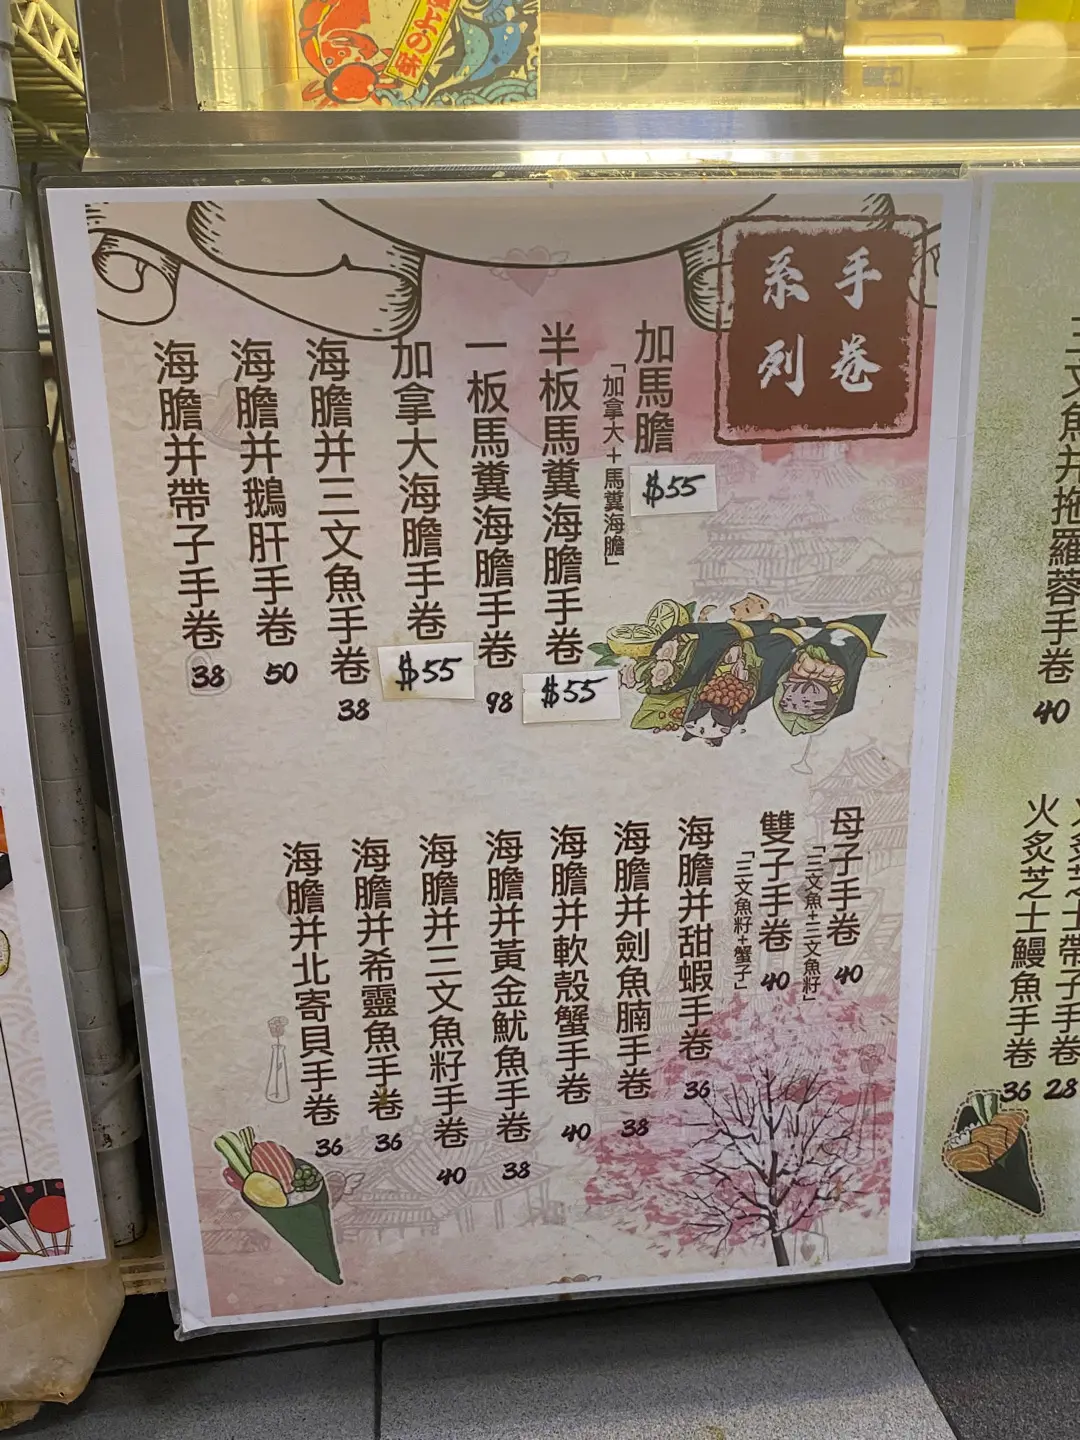 極上の味
手卷
系列
加馬膽
「加拿大+馬糞海膽」
$55
半板馬糞海膽手卷
$55
一板馬糞海膽手卷
98
加拿大海膽手卷
$55
海膽并三文魚手卷
38
海膽并鵝肝手卷
50
海膽并帶子手卷
38
母子手卷
「三文魚+三文魚籽」
40
雙子手卷
「三文魚籽+蟹子」
40
海膽并甜蝦手卷
36
海膽并劍魚腩手卷
38
海膽并軟殼蟹手卷
40
海膽并黃金魷魚手卷
38
海膽并三文魚籽手卷
40
海膽并希靈魚手卷
36
海膽并北寄貝手卷
36
三文魚并拖羅蓉手卷
40
火炙芝士帶子手卷
28
火炙芝士鰻魚手卷
36